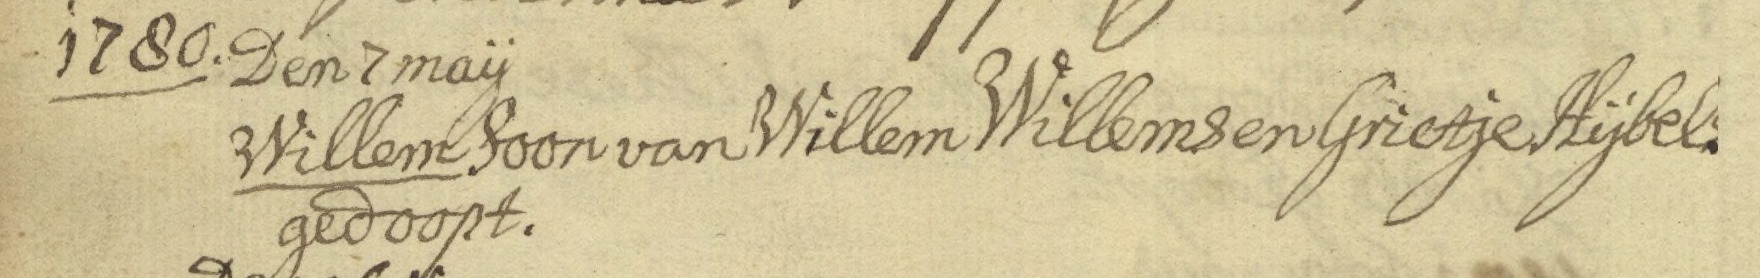 1780. Den 7 maij
Willem Soon van Willem Willems en Grietje Hijbel:
gedoopt.